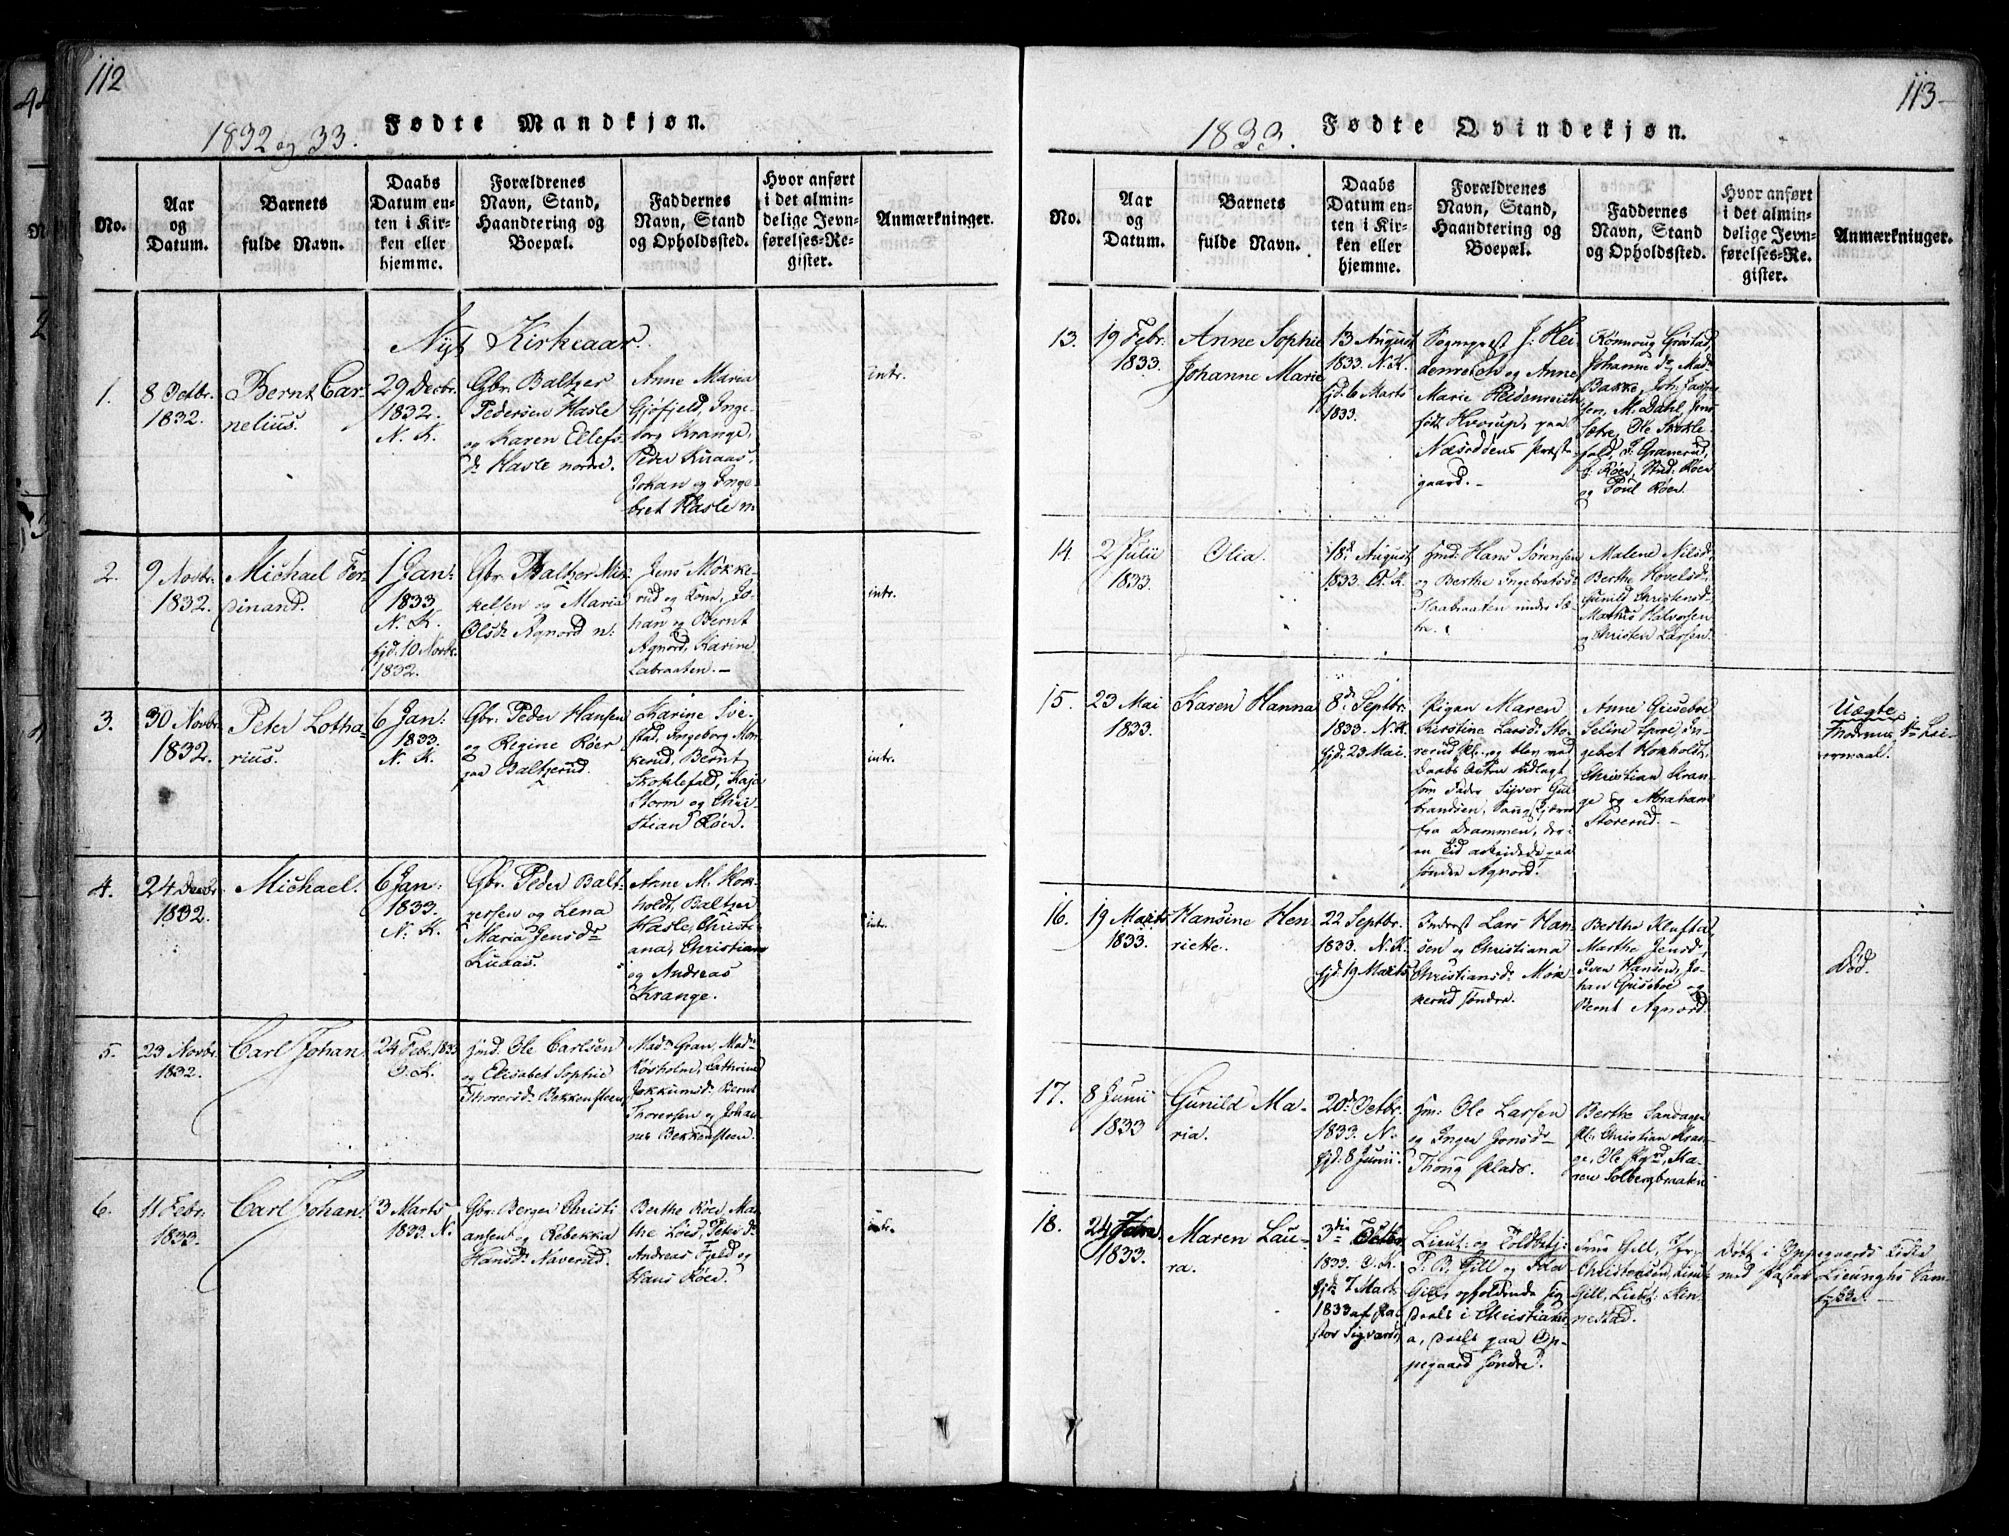 112
1832 og 33.
Fødte Mandkjøn.
No.
Aar
og
Datum.
Barnets
fulde Navn.
Daabs
Datum en-
ten i Kir-
ken eller
hjemme.
Forældrenes
Navn, Stand,
Haandtering og
Boepæl.
Faddernes
Navn, Stand
og Opholdssted.
Hvor anført
i det almin-
delige Jevn-
førelses-Re-
gister.
Anmærkninger.
Nyt Kirkeaar.
1.
8 Octbr.
1832.
Bernt Cor-
nelius.
29 Decbr.
1832.
N. K.
Gbr. Baltzer
Pedersen Hasle
og Karen Ellefs
d. Hasle nordre.
Anne Maria
Gjøfjeld, Inge-
borg Krange,
Peder Kuaas,
Johan og Inge-
bret Hasle n.
intr.
2.
9 Novbr.
1832.
Michael Fer-
dinand.
1 Jan:
1833
N. K.
hjd. 10 Novbr.
1832.
Gbr. Baltzer Mik-
kelsen og Maria
Olsd. Agnord n:
Jens Mokke-
rud og Kone, Jo-
han og Bernt
Agnord, Karine
Labraaten.
intr.
3.
30 Novbr.
1832.
Peter Lotha-
rius.
6 Jan:
1833.
N. K.
Gbr. Peder Hansen
og Regine Røer
paa Baltzerud.
Karine Sve-
stad, Ingeborg Mok-
kerud, Bernt
Skoklefald, Kaja
Storm og Chri-
stian Røer.
intr.
4.
24 Decbr.
1832.
Michael.
6 Jan:
1833.
N. K.
Gbr. Peder Balt-
zersen og Lena
Maria Jensdr
Kuaas.
Anne M. Hok-
holdt, Baltzer
Hasle, Christi-
ana, Christian
og Andreas
Krange.
intr.
5.
23 Novbr.
1832.
Carl Johan.
24 Febr. 1833
O. K.
Hmd. Ole Carlsen
og Elisabet Sophie
Thoresd. Bekkensteen
Mad. Gran, Mad.
Kørsholm, Cathrine
Jokkumsd. Bernt
Thoresen og Johan-
nes Bekkensteen.
6.
11 Febr.
1833.
Carl Johan.
3 Marts
1833. N.
Gbr. Berger Christi
ansen og Rebekka
Hansd. Naverud.
Berthe Røer, Mar-
the Løes, Peter d.
Andreas Fjeld og
Hans Røer.
intr.
113
1833.
Fødte Qvindekjøn.
No.
Aar
og
Datum.
Barnets
fulde Navn.
Daabs
Datum en-
ten i Kir-
ken eller
hjemme.
Forældrenes
Navn, Stand,
Haandtering og
Boepæl.
Faddernes
Navn, Stand
og Opholdssted.
Hvor anført
i det almin-
delige Jevn-
førelses-Re-
gister.
Anmærkninger.
13.
19 Febr.
1833.
Anne Sophie
Johanne Marie
13 August
1833. N. K.
hjd. 6 Marts
1833.
Sognepræst J. Hei
denreich og Anne
Marie Heidenreich
født Hvorup, paa
Næsoddens Præste-
gaard.
Rønnoug Gråstad
Johanne d. Mad.
Bakke, Joh. Jasper-
sen, M. Dahl,
Sætre, Ole Skokle-
fald, J. Granerud,
Røer, Stud. Røer
og Poul Røer.
14
2 Julii
1833.
Olia.
18d August
1833. O. K.
Hmd: Hans Sørensen
og Berthe Ingebretsd.
Haabraaten under Sæ-
tre.
Malene Nilsd.
Berthe Hovelsd.
Gunild Christensd.
Mathis Halvorsen
og Christen Larsen.
15.
23 Mai
1833.
Karen Hanna
8de Septbr.
1833. N. K.
hjd. 23 Mai.
Pigen Maren
Kirstine Larsd. Sto-
rerud Pl. og blev ved
Daabs Acten udlagt
som Fader Siver Gul-
brandsen, Saugskjærer
fra Drammen, der i
en Tid arbeidede paa
søndre Agnord.
Anne Gusebøe
Seline Sproe, In-
gebret Hokholdt,
Christian Kran-
ge og Abraham
Storerud.
Uægte
Moderens 1te Lei-
ermaal.
16.
19 Marts
1833.
Hansine Hen-
riette.
22 Septbr.
1833. N. K.
hjd. 19 Marts
Inderst Lars Han-
sen og Christiana
Christiansd. Mok-
kerud søndre.
Berthe Klufta,
Marthe Jensd.
Sven Hansen, Jo-
han Gusebøe og
Bernt Agnord.
Død.
17.
8 Junii
1833
Gunild Ma-
ria.
20d. Octbr.
1833. N.
hjd: 8 Junii.
Hm: Ole Larsen
og Inger Jonsdr
Thong Plads.
Berthe Sandager
Pl: Christian Kran-
ge, Ole Hgrd, Ma-
ren Solbergbraaten
18.
24
1833.
Maren Lau-
ra.
3die Octbr
1833. O. K.
hjd: 7 Marts
1833 af Pa-
stor Sigvardt
Lieut: og Toldbetj:
P. B. Gill og
Gill, opholdende sig
deels i Christiani-
a, deels paa Op-
pegaard søndre.
Gill, Jfr.
Christensen, Lieut
Gill, Lieut: Lin-
nestad.
Døbt i Oppegaards Kirke
med Pastor Lieunghs Sam-
tykke.